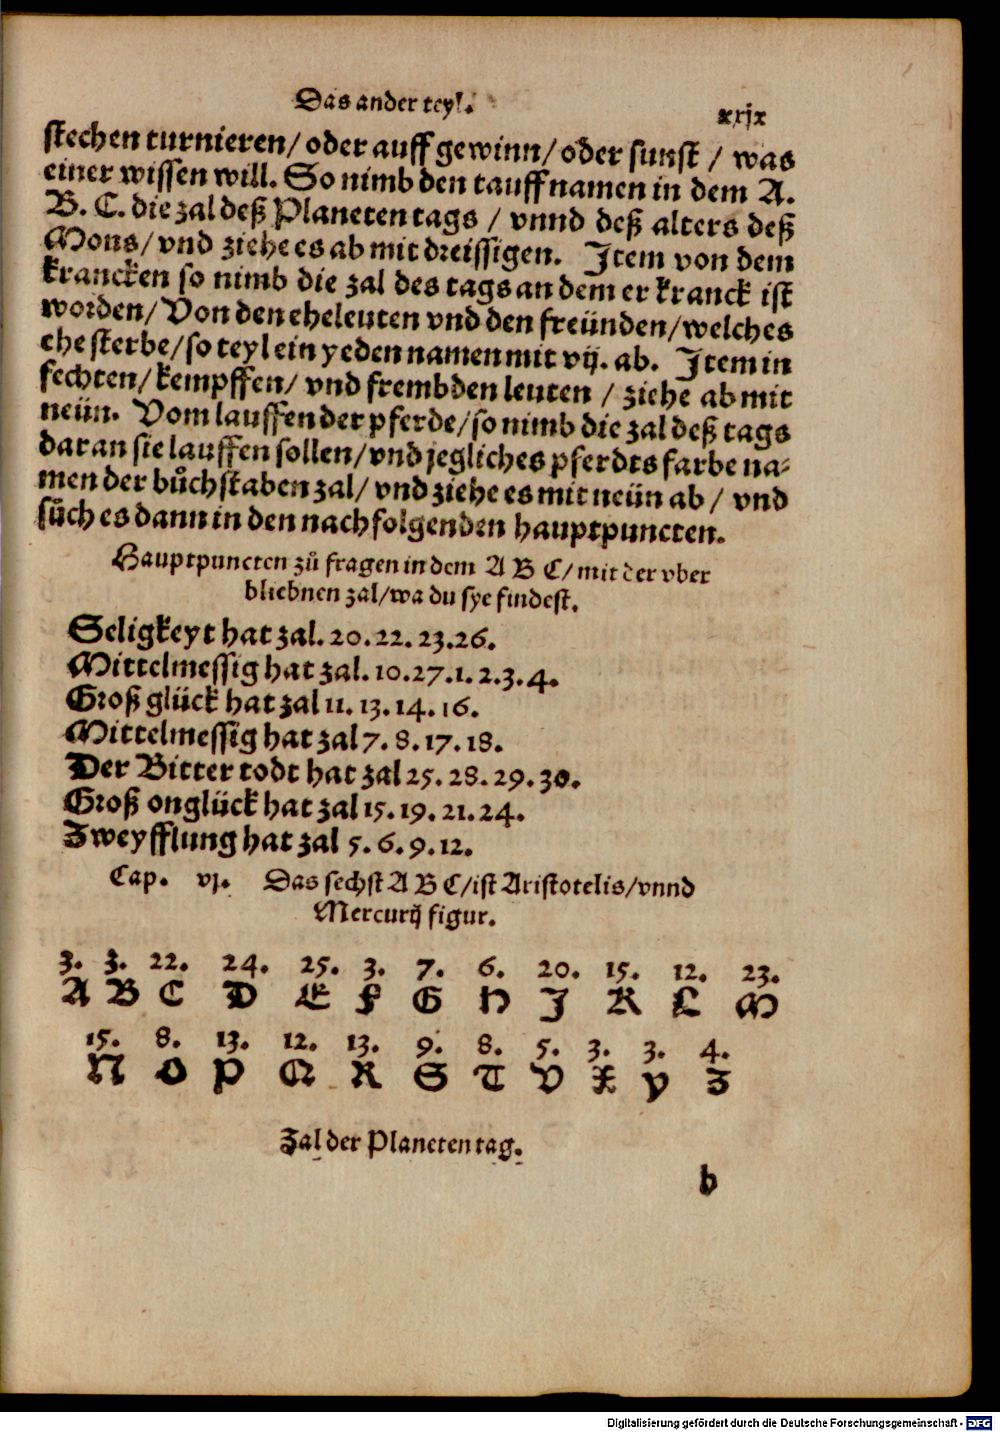 Das ander teyl.
xxjx
stechen turnieren/ oder auff gewinn/ oder sunst / was
einer wissen will. So nimb den tauffnamen in dem A.
B. C. die zal deß Planeten tags / vnnd deß alters deß
Mons/ vnd ziehe es ab mit dreissigen. Item von dem
krancken so nimb die zal des tags an dem er kranck ist
worden/ Von den eheleuten vnd den freünden/ welches
ehe sterbe/ so teyl ein yeden namen mit vij. ab. Item in
fechten/ kempffen/ vnd frembden leuten / ziehe ab mit
neün. Vom lauffen der pferde/ so nimb die zal deß tags
daran sie lauffen sollen/ vnd jegliches pferdts farbe na⸗
men der bůchstaben zal/ vnd ziehe es mit neün ab / vnd
sůch es dann in den nachfolgenden hauptpuncten.
Hauptpuncten zů fragen in dem A B C/ mit der vber
bliebnen zal/ wa du sye findest.
Seligkeyt hat zal. 20. 22. 23. 26.
Mittelmessig hat zal. 10. 27. 1. 2. 3. 4.
Groß glück hat zal 11. 13. 14. 16.
Mittelmessig hat zal 7. 8. 17. 18.
Der Bitter todt hat zal 25. 28. 29. 30.
Groß onglück hat zal 15. 19. 21. 24.
Zweyfflung hat zal 5. 6. 9. 12.
Cap. vj. Das sechst A B C/ ist Aristotelis/ vnnd
Mercurij figur.
3. 3. 22. 24. 25. 3. 7. 6. 20. 15. 12. 23.
A B C D E F G H I K L M
15. 8. 13. 12. 13. 9. 8. 5. 3. 3. 4.
N O P Q R S T V X Y Z
Zal der Planeten tag.
b
Digitalisierung gefördert durch die Deutsche Forschungsgemeinschaft - DFG